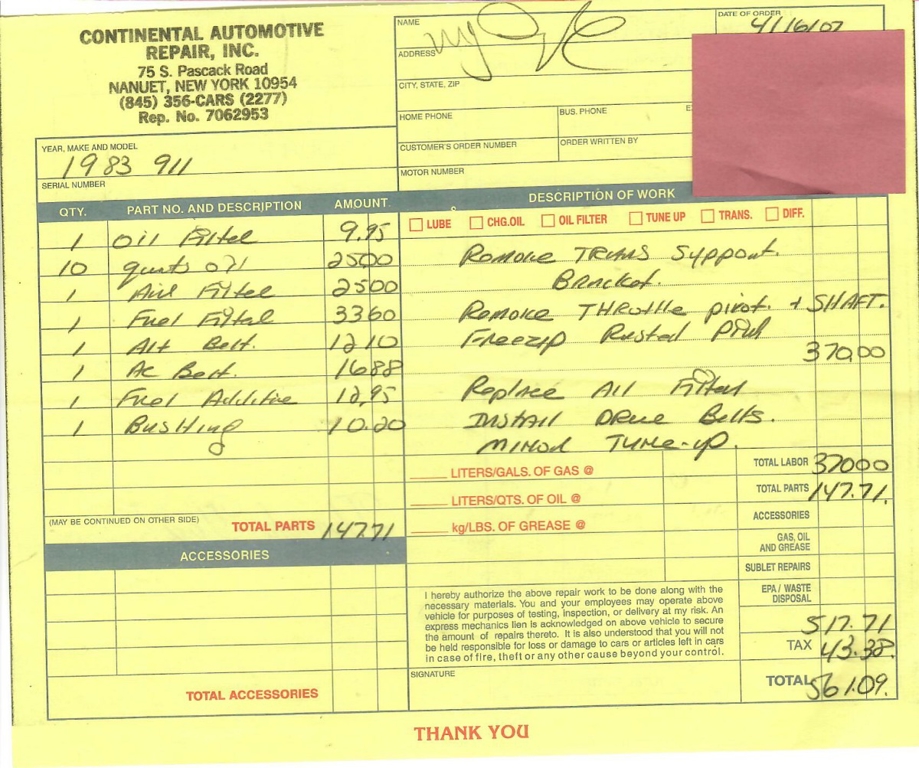 CONTINENTAL AUTOMOTIVE
REPAIR, INC.
75 S. Pascack Road
NANUET, NEW YORK 10954
(845) 356-CARS (2277)
Rep. No. 7062953
NAME
DATE OF ORDER
4/16/07
ADDRESS
CITY, STATE, ZIP
HOME PHONE
BUS. PHONE
CUSTOMER'S ORDER NUMBER
ORDER WRITTEN BY
MOTOR NUMBER
YEAR, MAKE AND MODEL
1983 911
SERIAL NUMBER
QTY. PART NO. AND DESCRIPTION AMOUNT
1 Oil Filter 9.95
10 quarts oil 2500
1 Air Filter 2500
1 Fuel Filter 3360
1 Alt Belt. 1210
1 Ac Belt. 1688
1 Fuel Additive 12.95
1 Bushing 10.20
(MAY BE CONTINUED ON OTHER SIDE) TOTAL PARTS 147.71
ACCESSORIES
TOTAL ACCESSORIES
DESCRIPTION OF WORK
LUBE CHG.OIL OIL FILTER TUNE UP TRANS. DIFF.
Remove TRANS Support.
Bracket.
Remove THRottle pivot. + SHAFT.
Freezup Rusted Pin
370.00
Replace All Filter
Install DRive Belts.
Minor TUNE-up.
LITERS/GALS. OF GAS @
LITERS/QTS. OF OIL @
kg/LBS. OF GREASE @
TOTAL LABOR 37000
TOTAL PARTS 147.71
ACCESSORIES
GAS, OIL
AND GREASE
SUBLET REPAIRS
EPA / WASTE
DISPOSAL
517.71
TAX 43.38
TOTAL 561.09.
I hereby authorize the above repair work to be done along with the
necessary materials. You and your employees may operate above
vehicle for purposes of testing, inspection, or delivery at my risk. An
express mechanics lien is acknowledged on above vehicle to secure
the amount of repairs thereto. It is also understood that you will not
be held responsible for loss or damage to cars or articles left in cars
in case of fire, theft or any other cause beyond your control.
SIGNATURE
THANK YOU